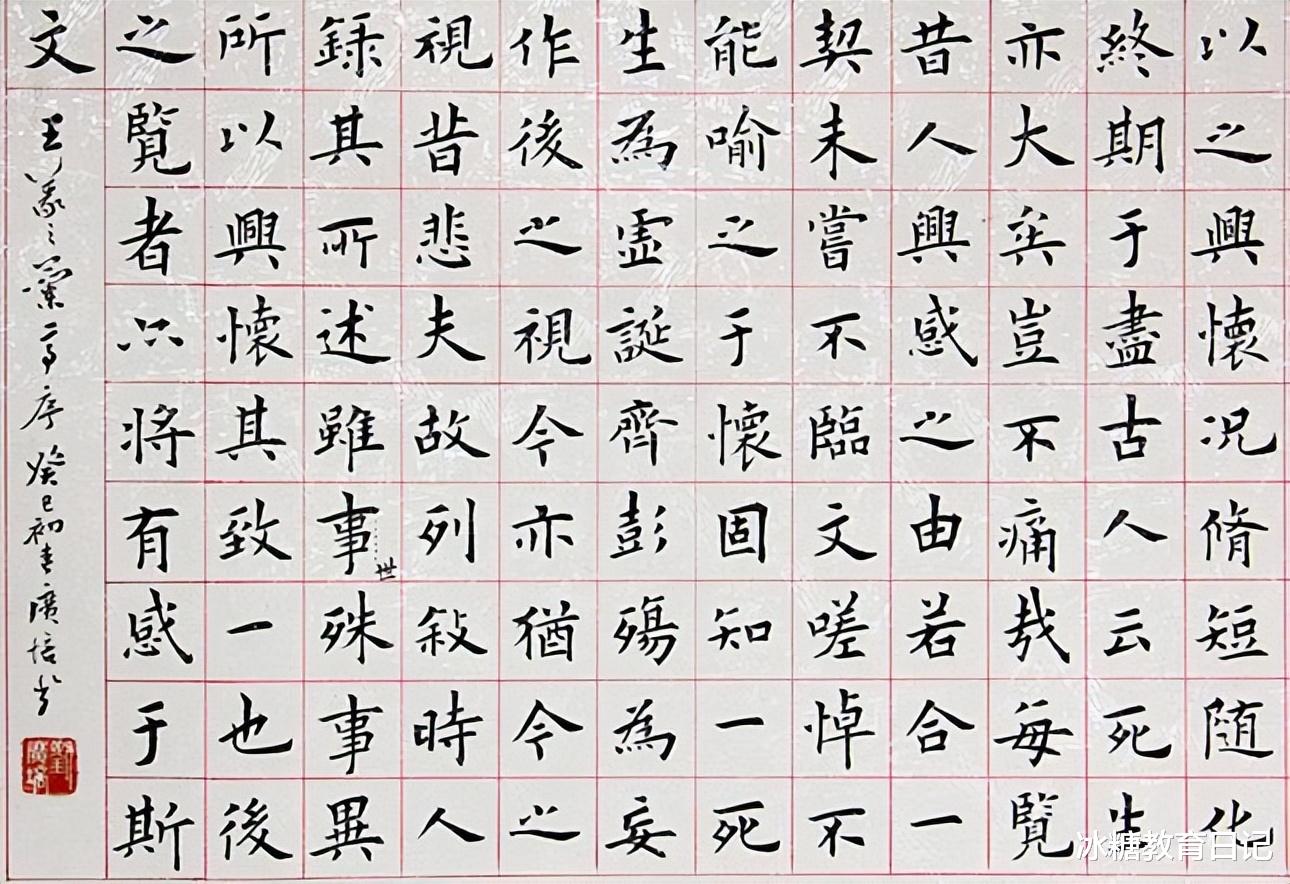 以之興懷況脩短随化
終期于盡古人云死生
亦大矣豈不痛哉每覽
昔人興感之由若合一
契未嘗不臨文嗟悼不
能喻之于懷固知一死
生為虛誕齊彭殤為妄
作後之視今亦猶今之
視昔悲夫故列敍時人
錄其所述雖事殊事異
世
所以興懷其致一也後
之覽者亦將有感于斯
文
王羲之蘭亭序 癸巳初春廣培書
冰糖教育日记